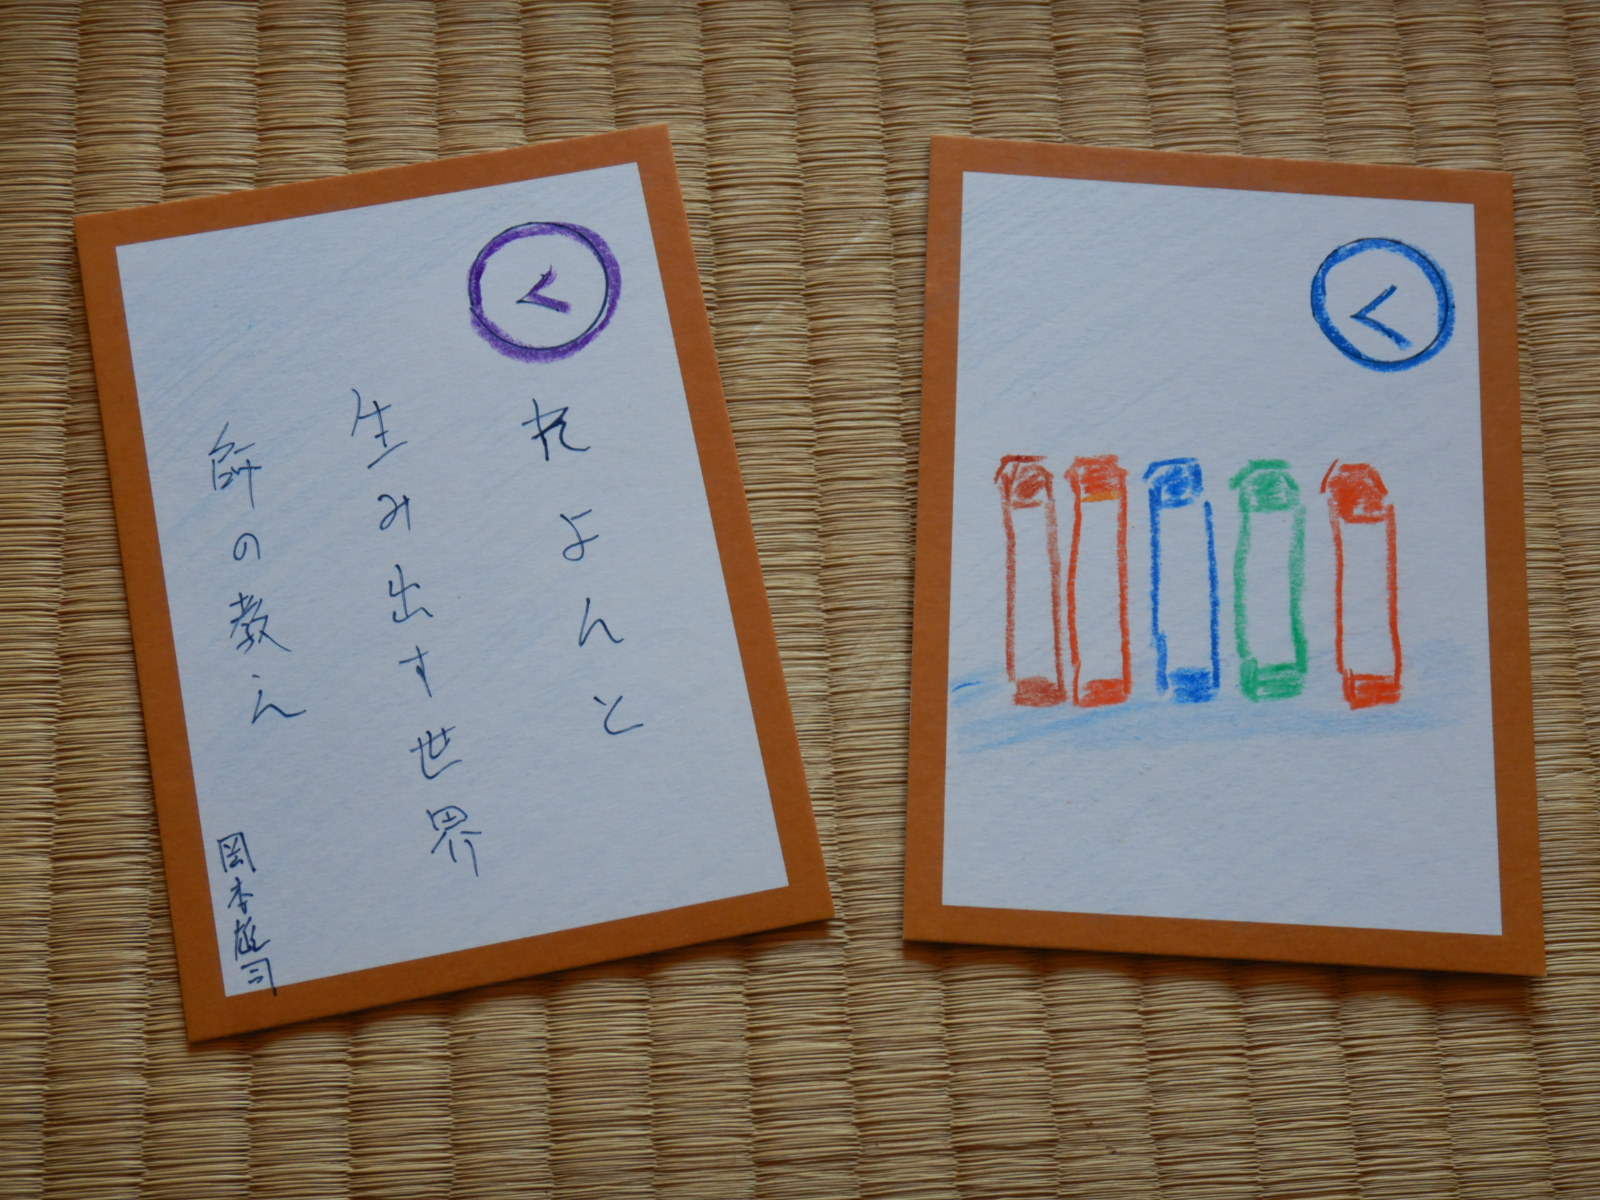 く
れよんと
生み出す世界
師の教え
岡本雄司
く